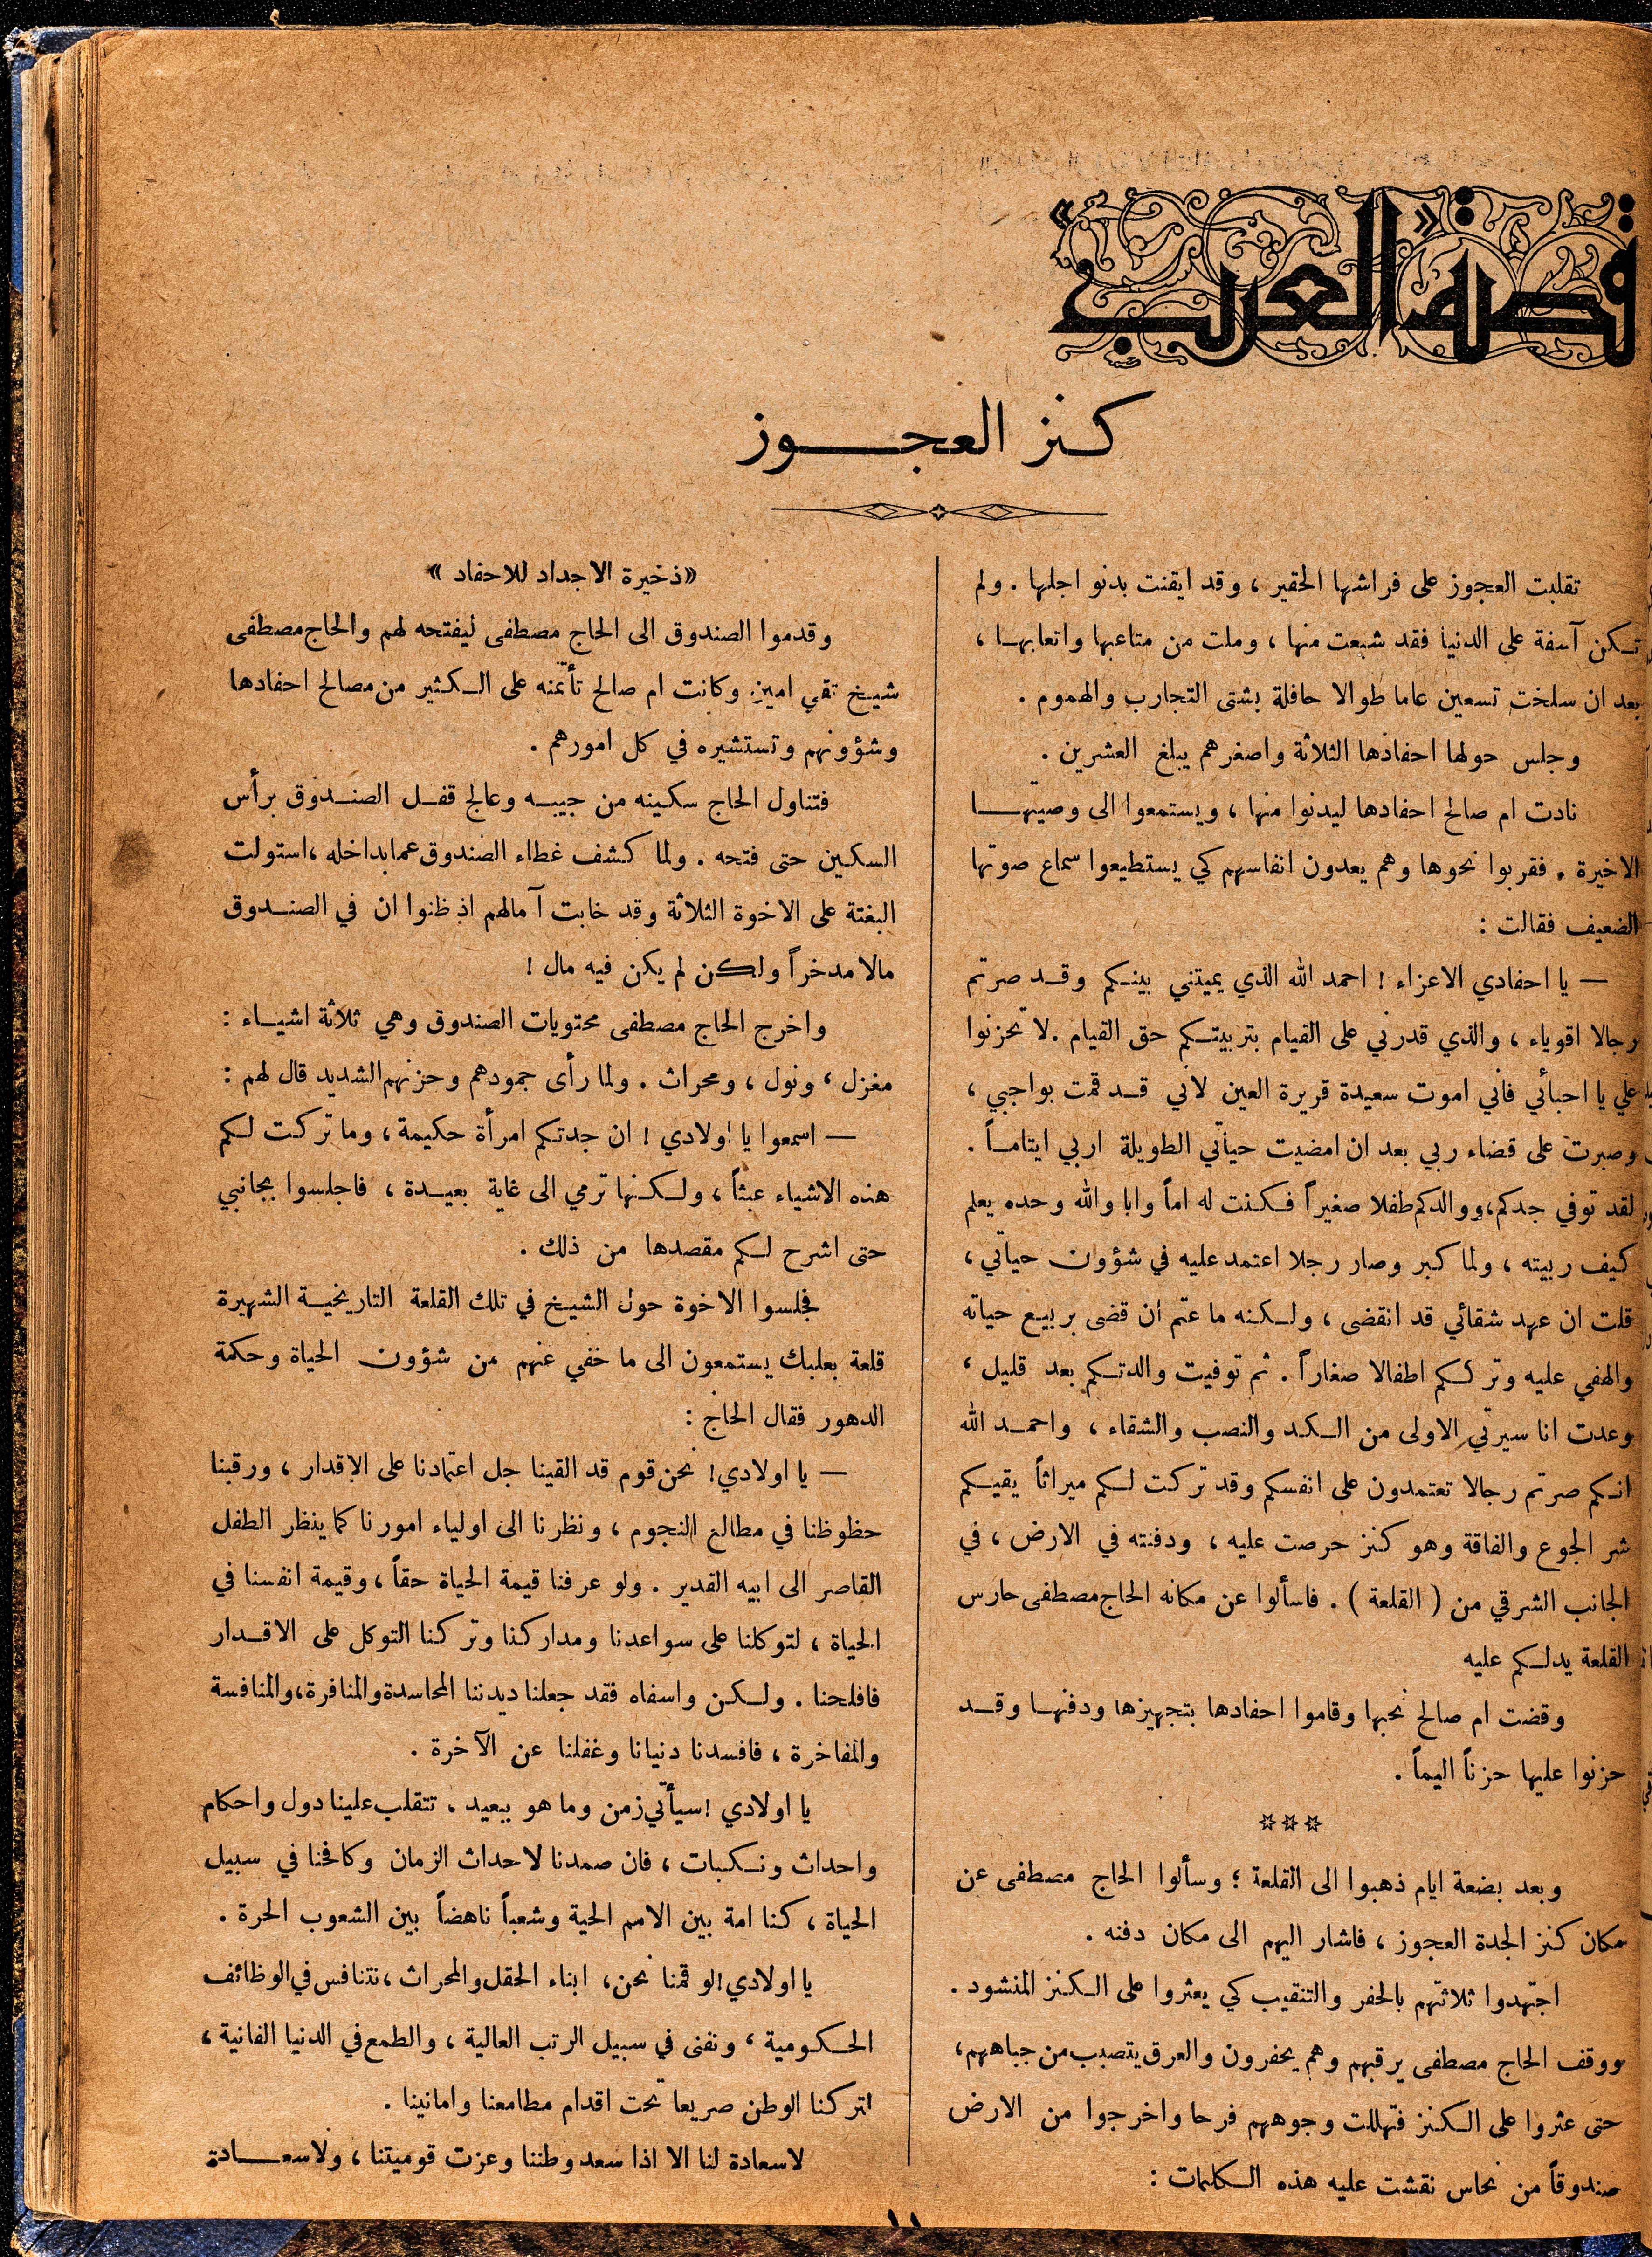 قصة «العرب»
كنز العجـــوز
تقلبت العجوز على فراشها الحقير ، وقد ايقنت بدنو اجلها . ولم
تكن آسفة على الدنيا فقد شبعت منها ، وملت من متاعبها واتعابها ،
بعد ان سلخت تسعين عاما طوالا حافلة بشتى التجارب والهموم .
وجلس حولها احفادها الثلاثة واصغرهم يبلغ العشرين .
نادت ام صالح احفادها ليدنوا منها ، ويستمعوا الى وصيتها
الاخيرة . فقربوا نحوها وهم يعدون انفاسهم كي يستطيعوا سماع صوتها
الضعيف فقالت :
— يا احفادي الاعزاء ! احمد الله الذي يميتني بينكم وقد صرتم
رجالا اقوياء ، والذي قدرني على القيام بتربيتكم حق القيام . لا تحزنوا
علي يا احبائي فاني اموت سعيدة قريرة العين لاني قد قمت بواجبي ،
وصبرت على قضاء ربي بعد ان امضيت حياتي الطويلة اربي ايتاماً .
لقد توفي جدكم ، ووالدكم طفلا صغيراً فكنت له اماً وابا والله وحده يعلم
كيف ربيته ، ولما كبر وصار رجلا اعتمد عليه في شؤون حياتي ،
قلت ان عهد شقائي قد انقضى ، ولكنه ما عتم ان قضى بربيع حياته
والهفي عليه وترككم اطفالا صغاراً . ثم توفيت والدتكم بعد قليل ،
وعدت انا سيرتي الاولى من الكد والنصب والشقاء ، واحمد الله
انكم صرتم رجالا تعتمدون على انفسكم وقد تركت لكم ميراثاً يقيكم
شر الجوع والفاقة وهو كنز حرصت عليه ، ودفنته في الارض ، في
الجانب الشرقي من ( القلعة ) . فاسألوا عن مكانه الحاج مصطفى حارس
القلعة يدلكم عليه
وقضت ام صالح نحبها وقاموا احفادها بتجهيزها ودفنها وقد
حزنوا عليها حزناً اليماً .
***
وبعد بضعة ايام ذهبوا الى القلعة ؛ وسألوا الحاج مصطفى عن
مكان كنز الجدة العجوز ، فاشار اليهم الى مكان دفنه .
اجتهدوا ثلاثتهم بالحفر والتنقيب كي يعثروا على الكنز المنشود .
ووقف الحاج مصطفى يرقبهم وهم يحفرون والعرق يتصبب من جباههم ،
حتى عثروا على الكنز فتهللت وجوههم فرحا واخرجوا من الارض
صندوقاً من نحاس نقشت عليه هذه الكلمات :
«ذخيرة الاجداد للاحفاد »
وقدموا الصندوق الى الحاج مصطفى ليفتحه لهم والحاج مصطفى
شيخ تقي امين وكانت ام صالح تأتمنه على الكثير من مصالح احفادها
وشؤونهم وتستشيره في كل امورهم .
فتناول الحاج سكينه من جيبه وعالج قفل الصندوق برأس
السكين حتى فتحه . ولما كشف غطاء الصندوق عما بداخله ، استولت
البغتة على الاخوة الثلاثة وقد خابت آمالهم اذ ظنوا ان في الصندوق
مالا مدخراً ولكن لم يكن فيه مال !
واخرج الحاج مصطفى محتويات الصندوق وهي ثلاثة اشياء :
مغزل ، ونول ، ومحراث . ولما رأى جمودهم وحزنهم الشديد قال لهم :
— اسمعوا يا اولادي ! ان جدتكم امرأة حكيمة ، وما تركت لكم
هذه الاشياء عبثاً ، ولكنها ترمي الى غاية بعيدة ، فاجلسوا بجانبي
حتى اشرح لكم مقصدها من ذلك .
فجلسوا الاخوة حول الشيخ في تلك القلعة التاريخية الشهيرة
قلعة بعلبك يستمعون الى ما خفي عنهم من شؤون الحياة وحكمة
الدهور فقال الحاج :
— يا اولادي ! نحن قوم قد القينا جل اعتمادنا على الاقدار ، ورقبنا
حظوظنا في مطالع النجوم ، ونظرنا الى اولياء امورنا كما ينظر الطفل
القاصر الى ابيه القدير . ولو عرفنا قيمة الحياة حقاً ، وقيمة انفسنا في
الحياة ، لتوكلنا على سواعدنا ومداركنا وتركنا التوكل على الاقدار
فافلحنا . ولكن واسفاه فقد جعلنا ديدننا المحاسدة والمنافرة ، والمنافسة
والمفاخرة ، فافسدنا دنيانا وغفلنا عن الآخرة .
يا اولادي ! سيأتي زمن وما هو ببعيد . تتقلب علينا دول واحكام
واحداث ونكبات ، فان صمدنا لاحداث الزمان وكافحنا في سبيل
الحياة ، كنا امة بين الامم الحية وشعباً ناهضاً بين الشعوب الحرة .
يا اولادي ! لو قمنا نحن ، ابناء الحقل والمحراث ، نتنافس في الوظائف
الحكومية ، ونفنى في سبيل الرتب العالية ، والطمع في الدنيا الفانية ،
لتركنا الوطن صريعا تحت اقدام مطامعنا وامانينا .
لا سعادة لنا الا اذا سعد وطننا وعزت قوميتنا ، ولا سعادة